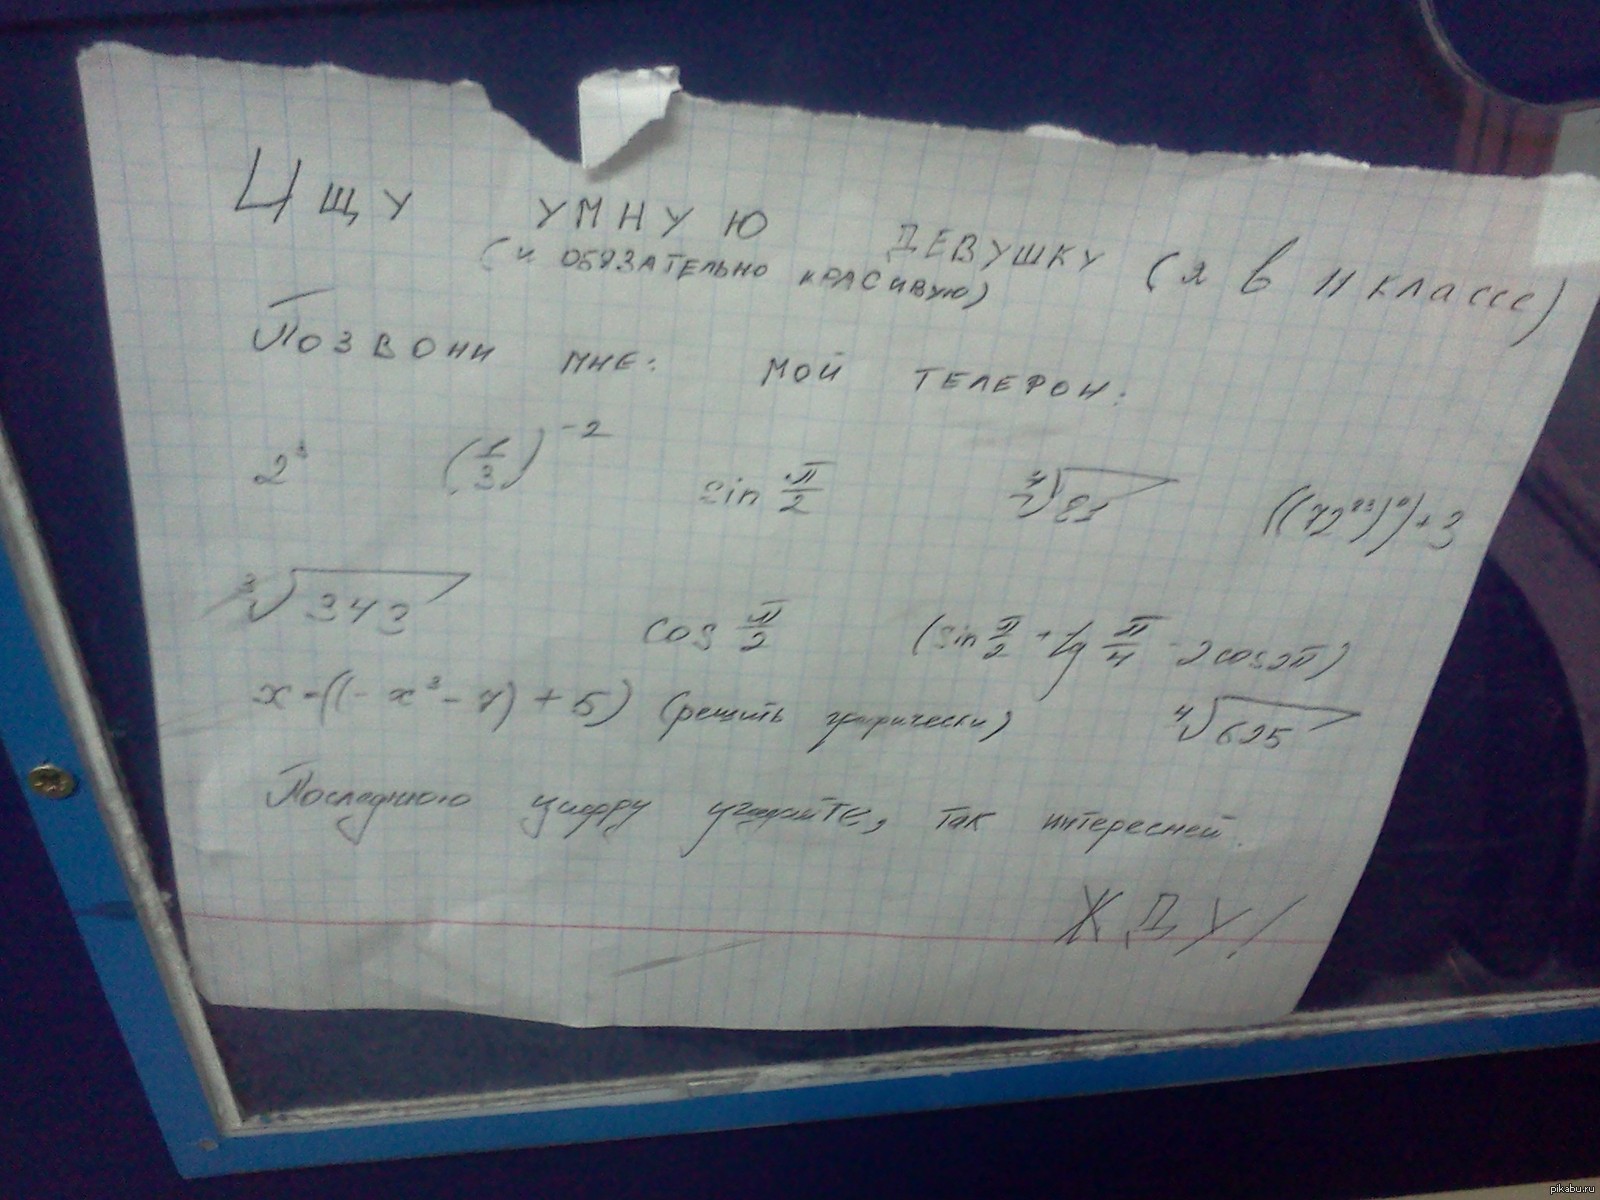 Ищу умную девушку (я в 11 классе)
(и обязательно красивую)
Позвони мне: мой телефон:
2³ (1/3)⁻² sin π/2 ⁴√81 ((72²³)⁰)+3
³√343 cos π/2 (sin π/2 + tg π/4 - 2cos2π)
x-((-x³-7)+5) (решить графически) ⁴√625
Последнюю цифру угадайте, так интересней.
ЖДУ!
pikabu.ru